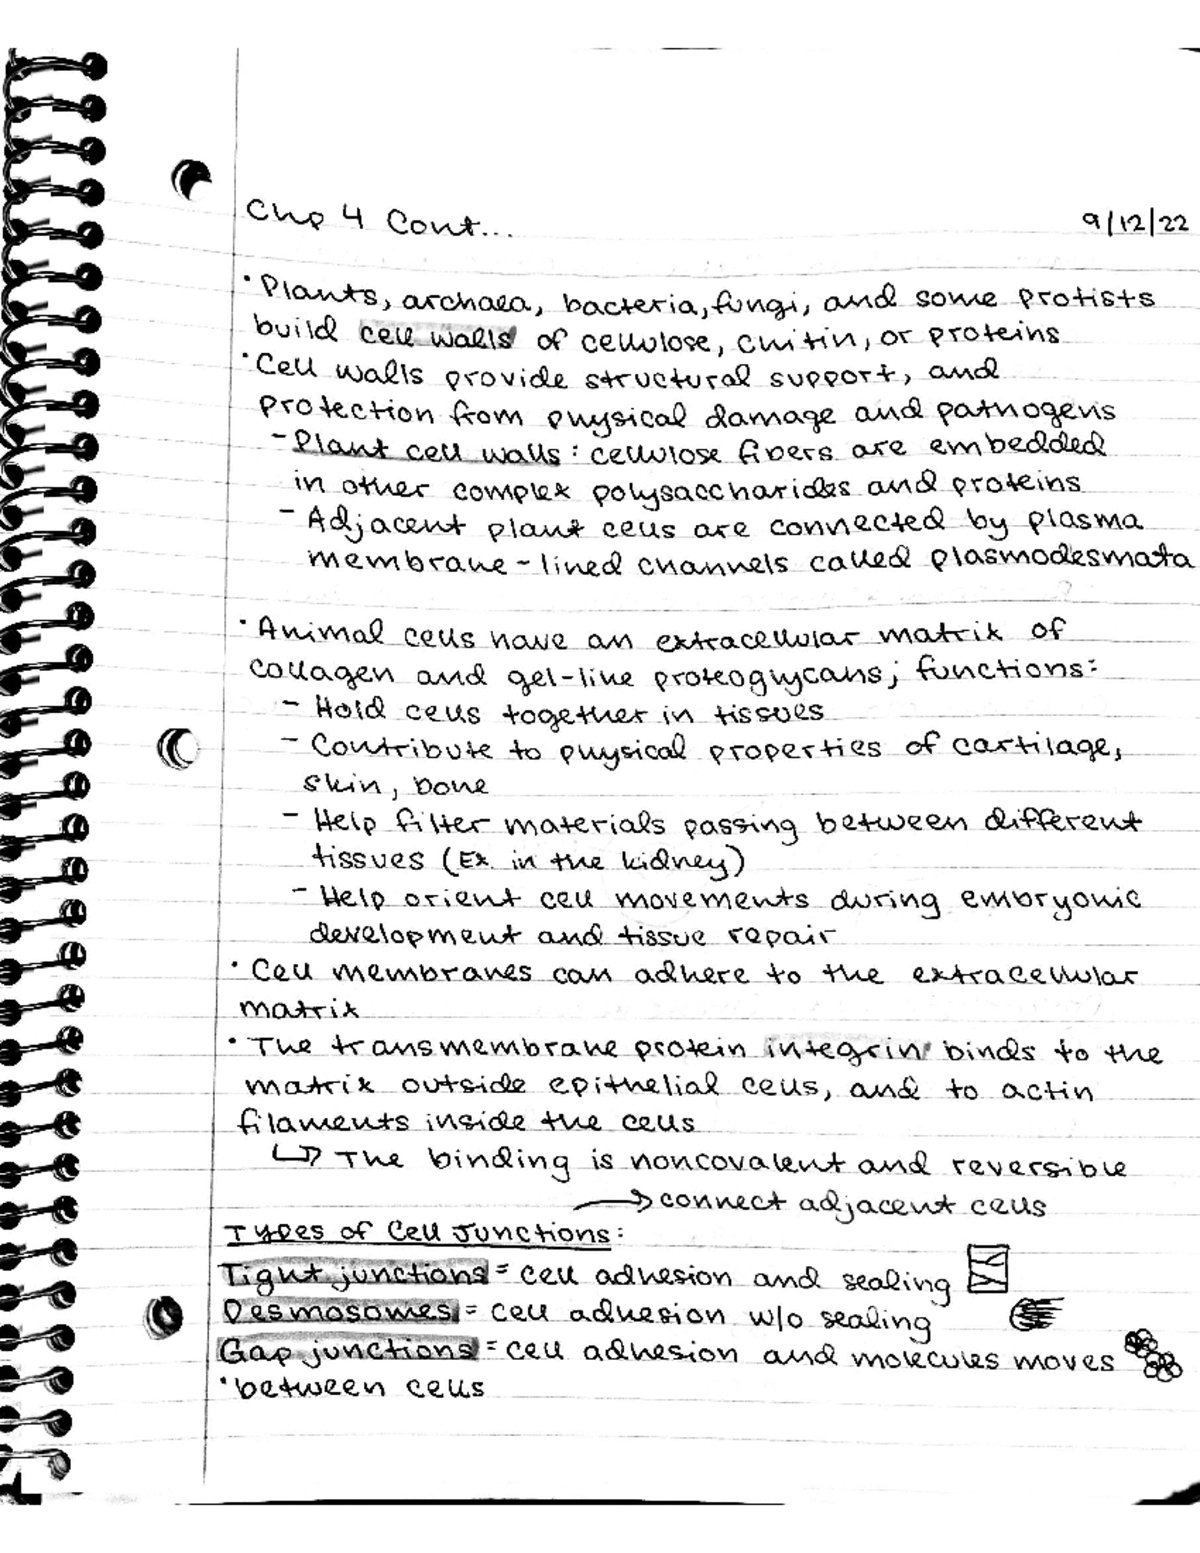 Chp 4 Cont...
9/12/22
• Plants, archaea, bacteria, fungi, and some protists
build cell walls of cellulose, chitin, or proteins
• Cell walls provide structural support, and
protection from physical damage and pathogens
- Plant cell walls: cellulose fibers are embedded
in other complex polysaccharides and proteins
- Adjacent plant cells are connected by plasma
membrane-lined channels called plasmodesmata
• Animal cells have an extracellular matrix of
collagen and gel-like proteoglycans; functions:
- Hold cells together in tissues
- Contribute to physical properties of cartilage,
skin, bone
- Help filter materials passing between different
tissues (Ex. in the kidney)
- Help orient cell movements during embryonic
development and tissue repair
• Cell membranes can adhere to the extracellular
matrix
• The transmembrane protein integrin binds to the
matrix outside epithelial cells, and to actin
filaments inside the cells
↳ The binding is noncovalent and reversible
→ connect adjacent cells
Types of Cell Junctions:
Tight junctions = cell adhesion and sealing
Desmosomes = cell adhesion w/o sealing
Gap junctions = cell adhesion and molecules moves
• between cells